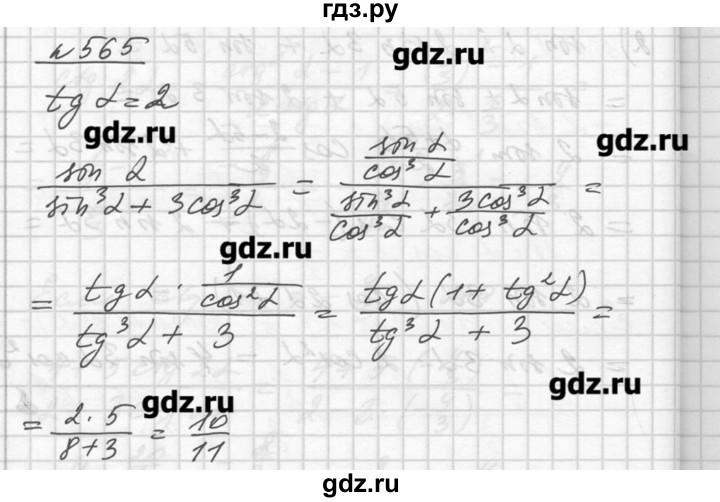 гдз.ру
№565
gdz.ru
tg α = 2
gdz.ru
gdz.ru
sin α / (sin³α + 3cos³α) = (sin α / cos³ α) / (sin³α / cos³α + 3cos³α / cos³α) =
gdz.ru
= (tg α · 1 / cos²α) / (tg³α + 3) = tg α (1 + tg²α) / (tg³α + 3) =
gdz.ru
gdz.ru
= 2·5 / (8+3) = 10 / 11
gdz.ru